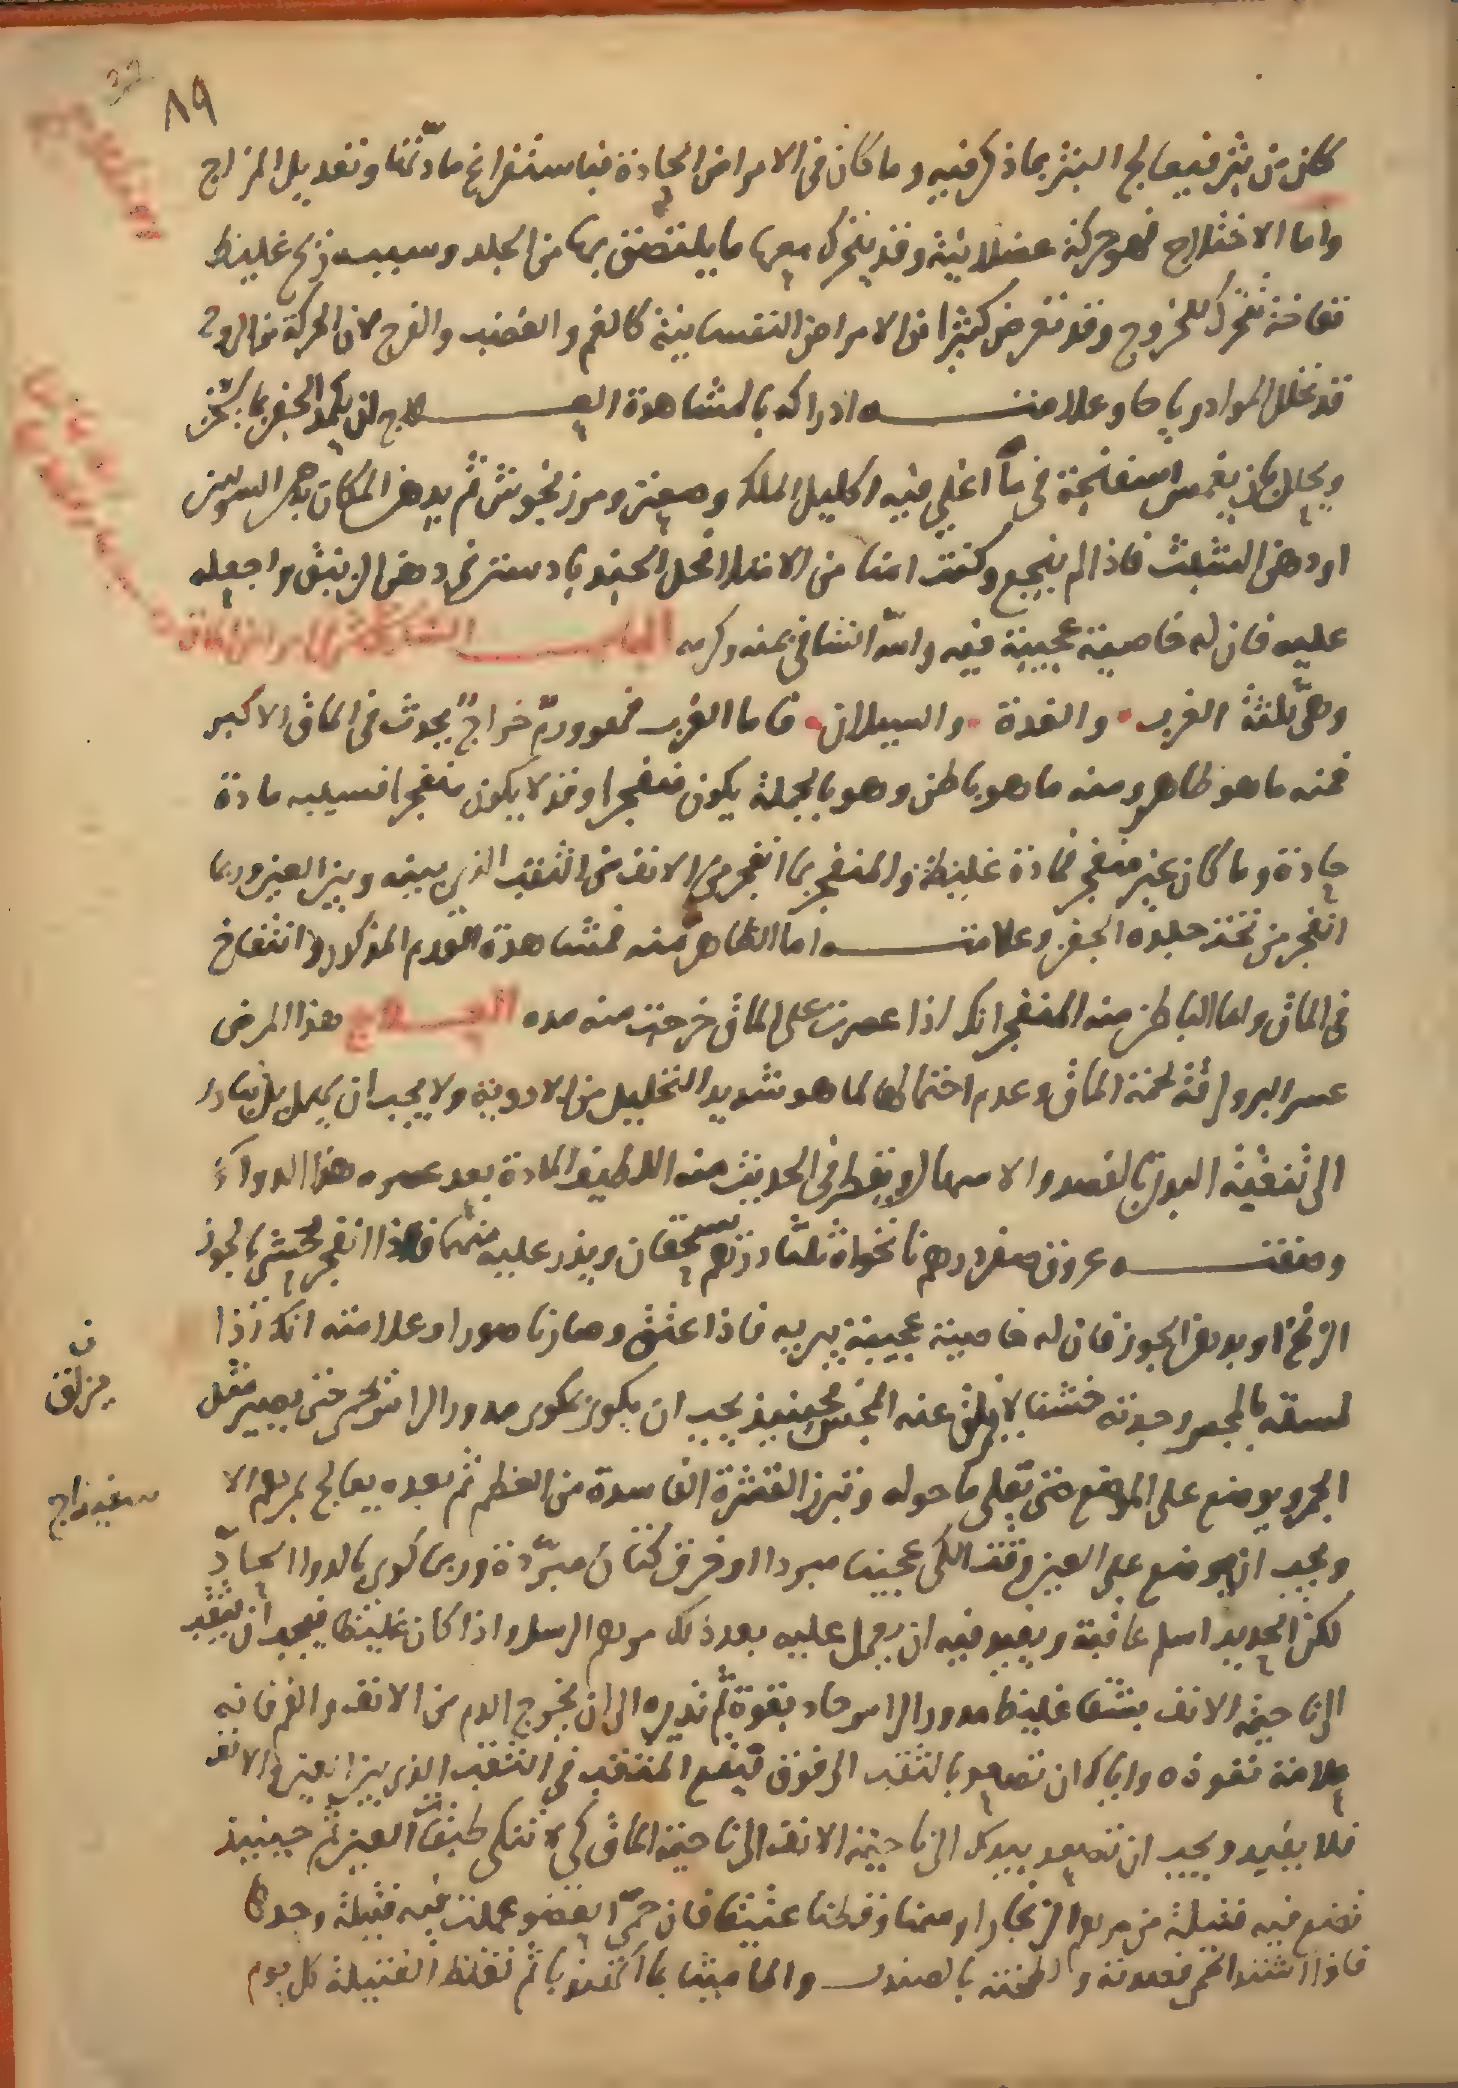 ٨٩
كان من بثر فيعالج البثر بما ذكر فيه وما كان في الامراض الحادة فباستفراغ مادتها وتعديل المزاج
واما الاختلاج فهو حركة عضلانية وقد يتحرك معها ما يلتصق بها من الجلد وسببه ريح غليظ
نفاخة تتحرك للخروج وقد تعرض كثيرا من الامراض النفسانية كالغم والغضب والفرح لان الحركة من الروح
قد تحلل المواد رياحا وعلامته ادراكه بالمشاهدة العلاج ان يكمد الجفن بما يسخن
ويحلل بان يغمس اسفنجة في ماء اغلي فيه اكليل الملك وصعتر ومرزنجوش ثم يدهن المكان بدهن السوسن
او دهن الشبث فاذا لم ينجع وكنت امنا من الامتلا فحل الجندبادستر في دهن الزنبق واجعله
عليه فان له خاصية عجيبة فيه والله الشافي بمنه وكرمه الباب الماق
وهي ثلثة الغرب والغدة والسيلان فاما الغرب فهو ورم خراج يحدث في الماق الاكبر
فمنه ما هو ظاهر ومنه ما هو باطن وهو بالجملة يكون منفجرا وقد لا يكون منفجرا فسببه مادة
حادة وما كان غير منفجر فمادة غليظة والمنفجر بما انفجر من الانف من الثقب الذي بينه وبين العين وربما
انفجر من تحت جلدة الجفن وعلامته اما الظاهر منه فمشاهدة الورم المذكور وانتفاخ
في الماق واما الباطن منه المنفجر انك اذا عصرت على الماق خرجت منه مده العلاج هذا المرض
عسر البرو لرقة لحمة الماق وعدم احتمالها لما هو شديد التحليل من الادوية ولا يجب ان يمهل بل يبادر
الى تنقية البدن بالفصد والاسهال ويقطر في الحديث منه اللطيف المادة بعد عصره هذا الدواء
وصفته عروق صفر درهم نانخواه ثلثا درهم يسحقان ويذر عليه منهما فاذا انفجر يحشى بالجوز
الزنخ او بدهن الجوز فان له خاصية عجيبة يبريه فاذا عتق وصار ناصورا وعلامته انك اذا
لمسته بالمجس وجدته خشنا لا يزلق عنه المجس فحينيذ يجب ان يكوى بمكوى مدور الراس حتى يصير مثل
الجمر ويوضع على الموضع حتى يغلي ما حوله وتبرز القشرة الفاسدة من العظم ثم بعده يعالج بمرهم الا
ويجب ان يوضع على العين وقت الكي عجينا مبردا او خرق كتان مبردة وربما كوي بالدوا الحاد
لكن الحديد اسلم عاقبة ويفيد فيه ان يعمل عليه بعد ذلك مرهم الرسل واذا كان غليظا فيجب ان يثقب
الى ناحية الانف بمثقب غليظ مدور الراس حاد بقوة ثم نديره الى ان يخرج الدم من الانف والفم فانه
علامة نفوذه واياك ان تصعد بالثقب الى فوق فيقع المثقب في الثقب الذي بين العين والانف
فلا يفيد ويجب ان تصعد بيدك الى ناحية الانف الى ناحية الماق كي لا تنكي طبقات العين ثم حينيذ
تضع فيه فتيلة من مرهم الزنجار او سمنا وقطنا عتيقا فان حمي العضو عملت فيه فتيلة وحدها
فاذا اشتد الحمى فصدته ولطخته بالصندل والماميثا بماء الهندبا ثم تغلظ الفتيلة كل يوم
ن
يزلق
سفيداج